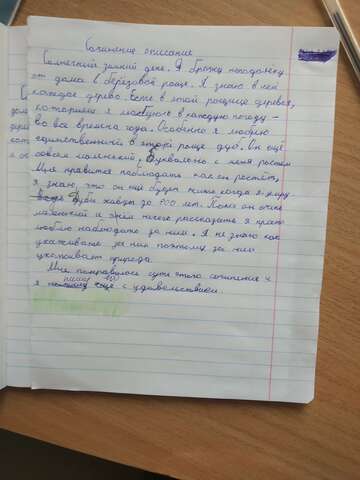 Сочинение описание
Солнечный зимний день. Я брожу неподалёку
от дома в берёзовой роще. Я знаю в ней
каждое дерево. Есть в этой рощице деревья,
которыми я любуюсь в каждую погоду -
во все времена года. Особенно я люблю
единственный в этой роще дуб. Он ещё
совсем маленький. Буквально с меня ростом
Мне нравится наблюдать как он растёт,
я знаю, что он ещё будет жить когда я умру
Дубы живут до 400 лет. Пока он очень
маленький и о нём нечего рассказать я просто
люблю наблюдать за ним. Я не знаю как
ухаживать за ним поэтому за ним
ухаживает природа.
Мне понравилось суть этого сочинения и
я пишу его с удовольствием